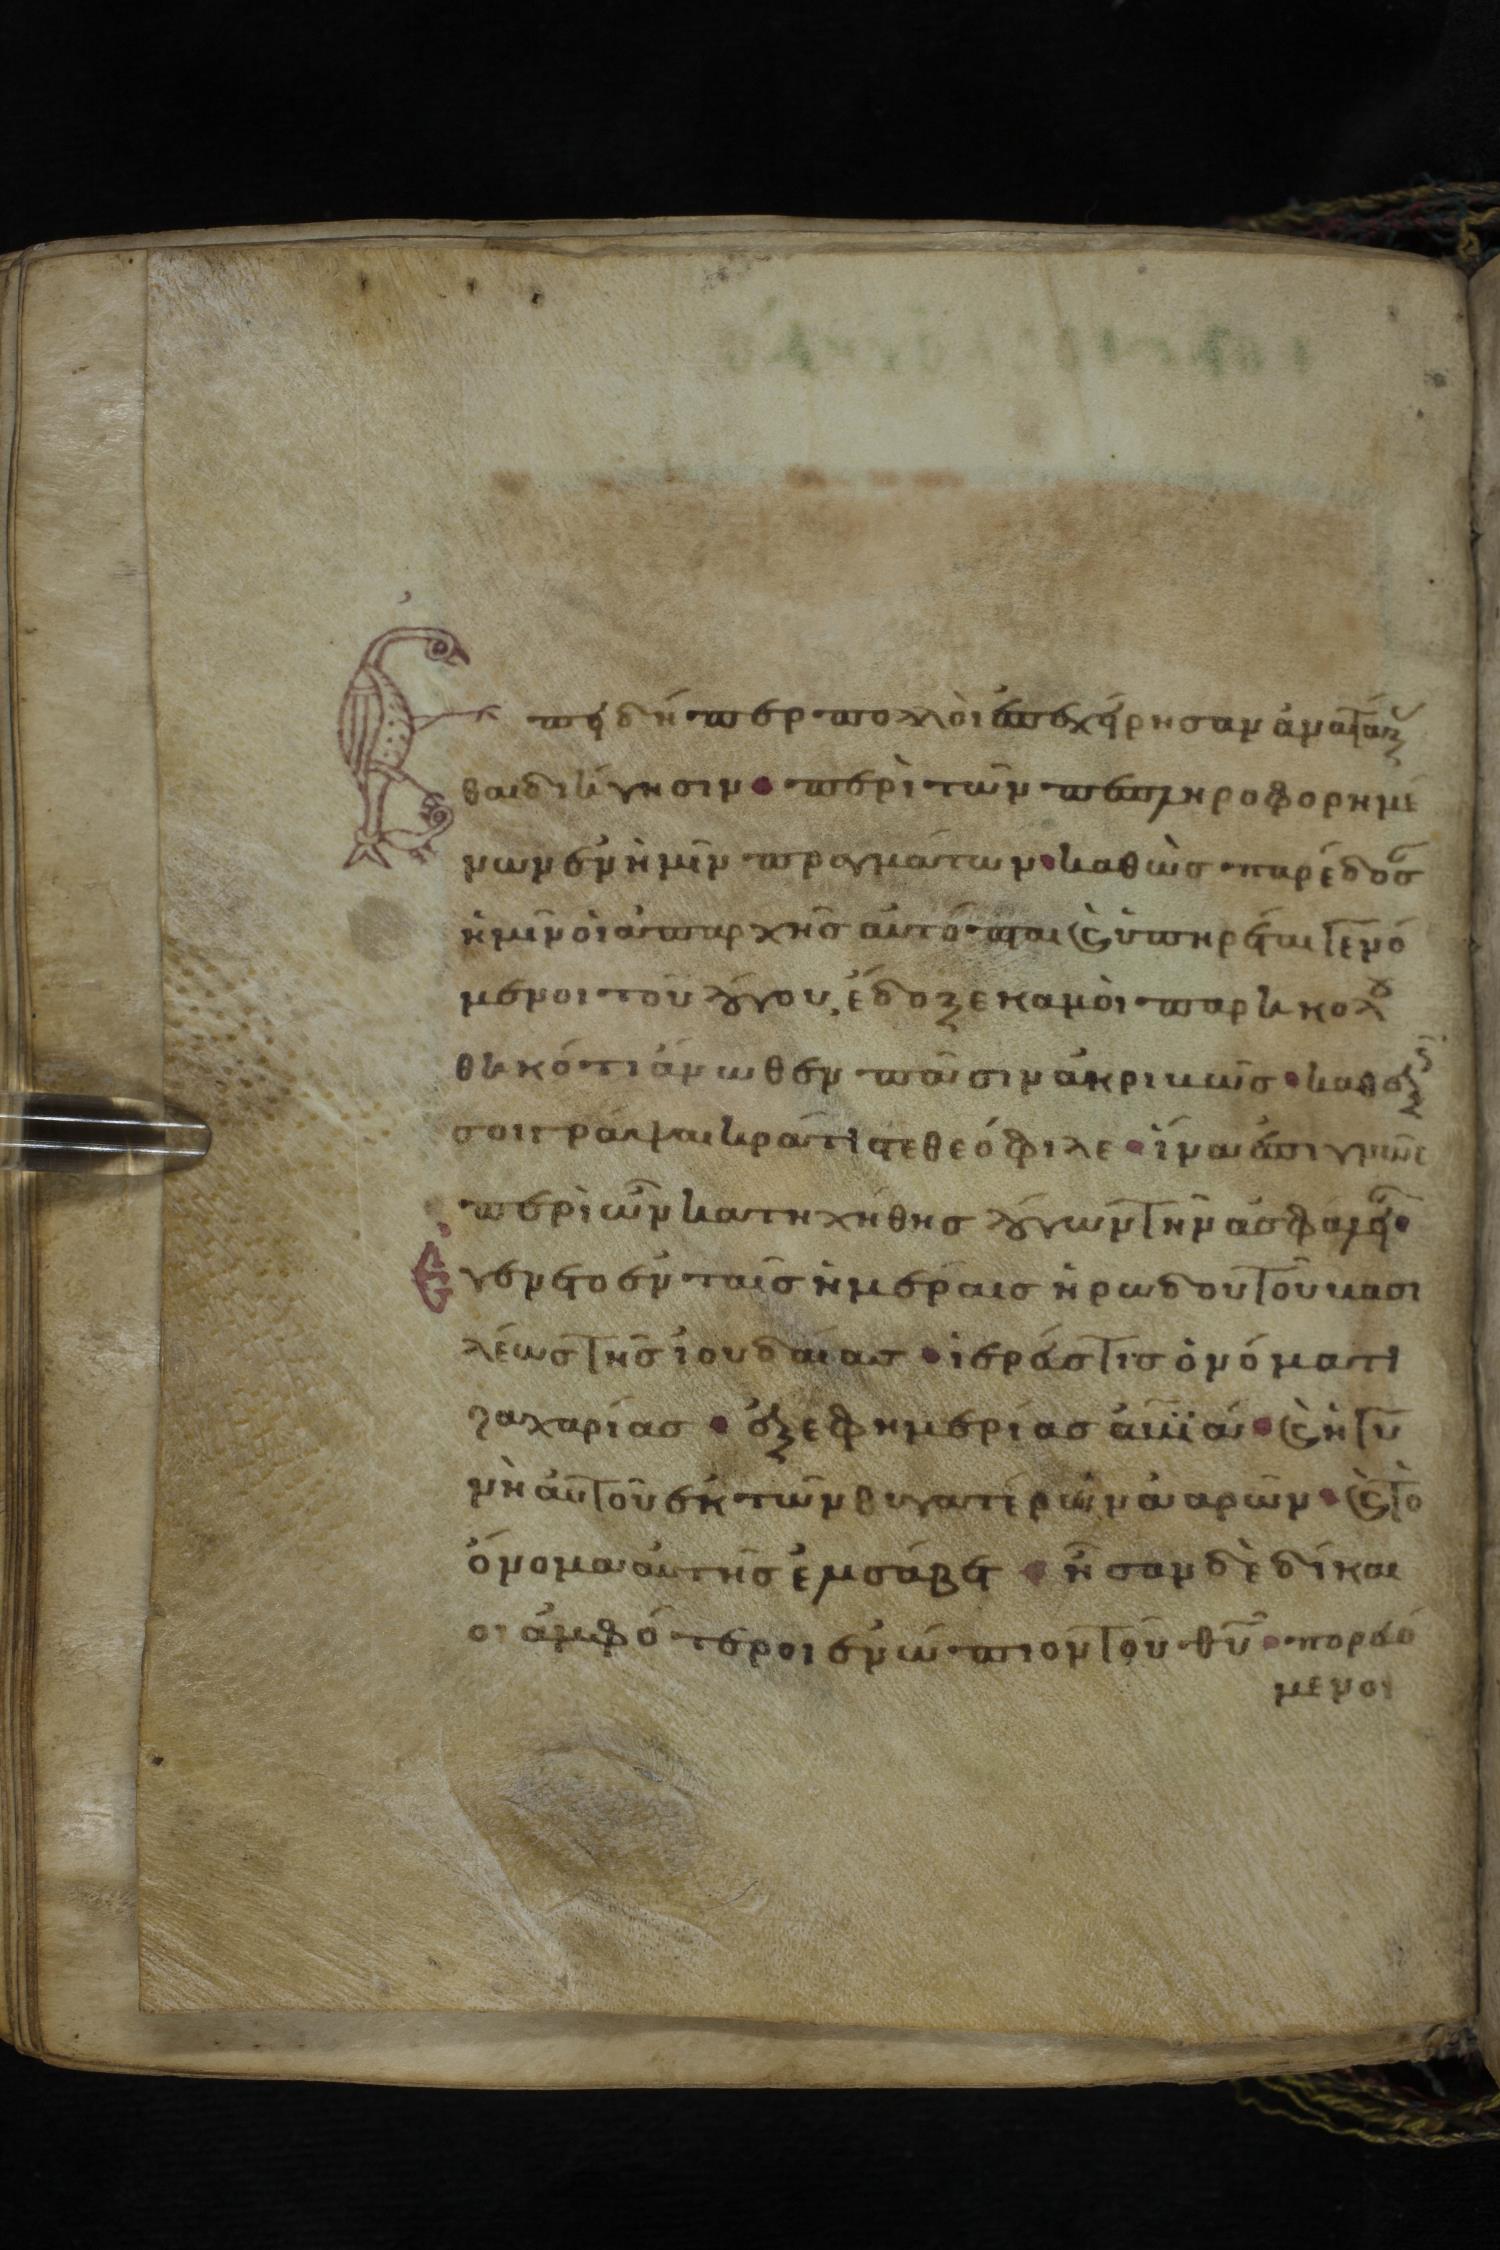 Ἐπειδήπερ πολλοὶ ἐπεχείρησαν ἀνατάξα
σθαι διήγησιν · περὶ τῶν πεπληροφορημέ
νων ἐν ἡμῖν πραγμάτων · καθὼς παρέδοσ
ἡμῖν οἱ ἀπαρχῆς αὐτόπται ϗ ὑπηρέται γενό
μενοι τοῦ λόγου, ἔδοξε καμοὶ παρηκολου
θηκότι ἄνωθεν πᾶσιν ἀκριβῶς · καθεξῆς
σοι γράψαι κράτιστε θεόφιλε · ἵνα ἐπιγνῶς
περὶ ὧν κατηχήθης λόγων τὴν ἀσφάλειαν ·
Ἐγένετο ἐν ταῖς ἡμέραις ἡρώδου τοῦ βασι
λέως τῆς ἰουδαίας · ἱερεύς τις ὀνόματι
ζαχαρίας · ἐξ εφημερίας ἀβϊά · ϗ ἡ γυ
νὴ αὐτοῦ ἐκ τῶν θυγατέρων ἀαρῶν · ϗ τὸ
ὄνομα αὐτῆς ἐλισάβετ · ἦσαν δὲ δίκαι
οι ἀμφότεροι ἐνώπιον τοῦ θῦ · πορευό
μενοι